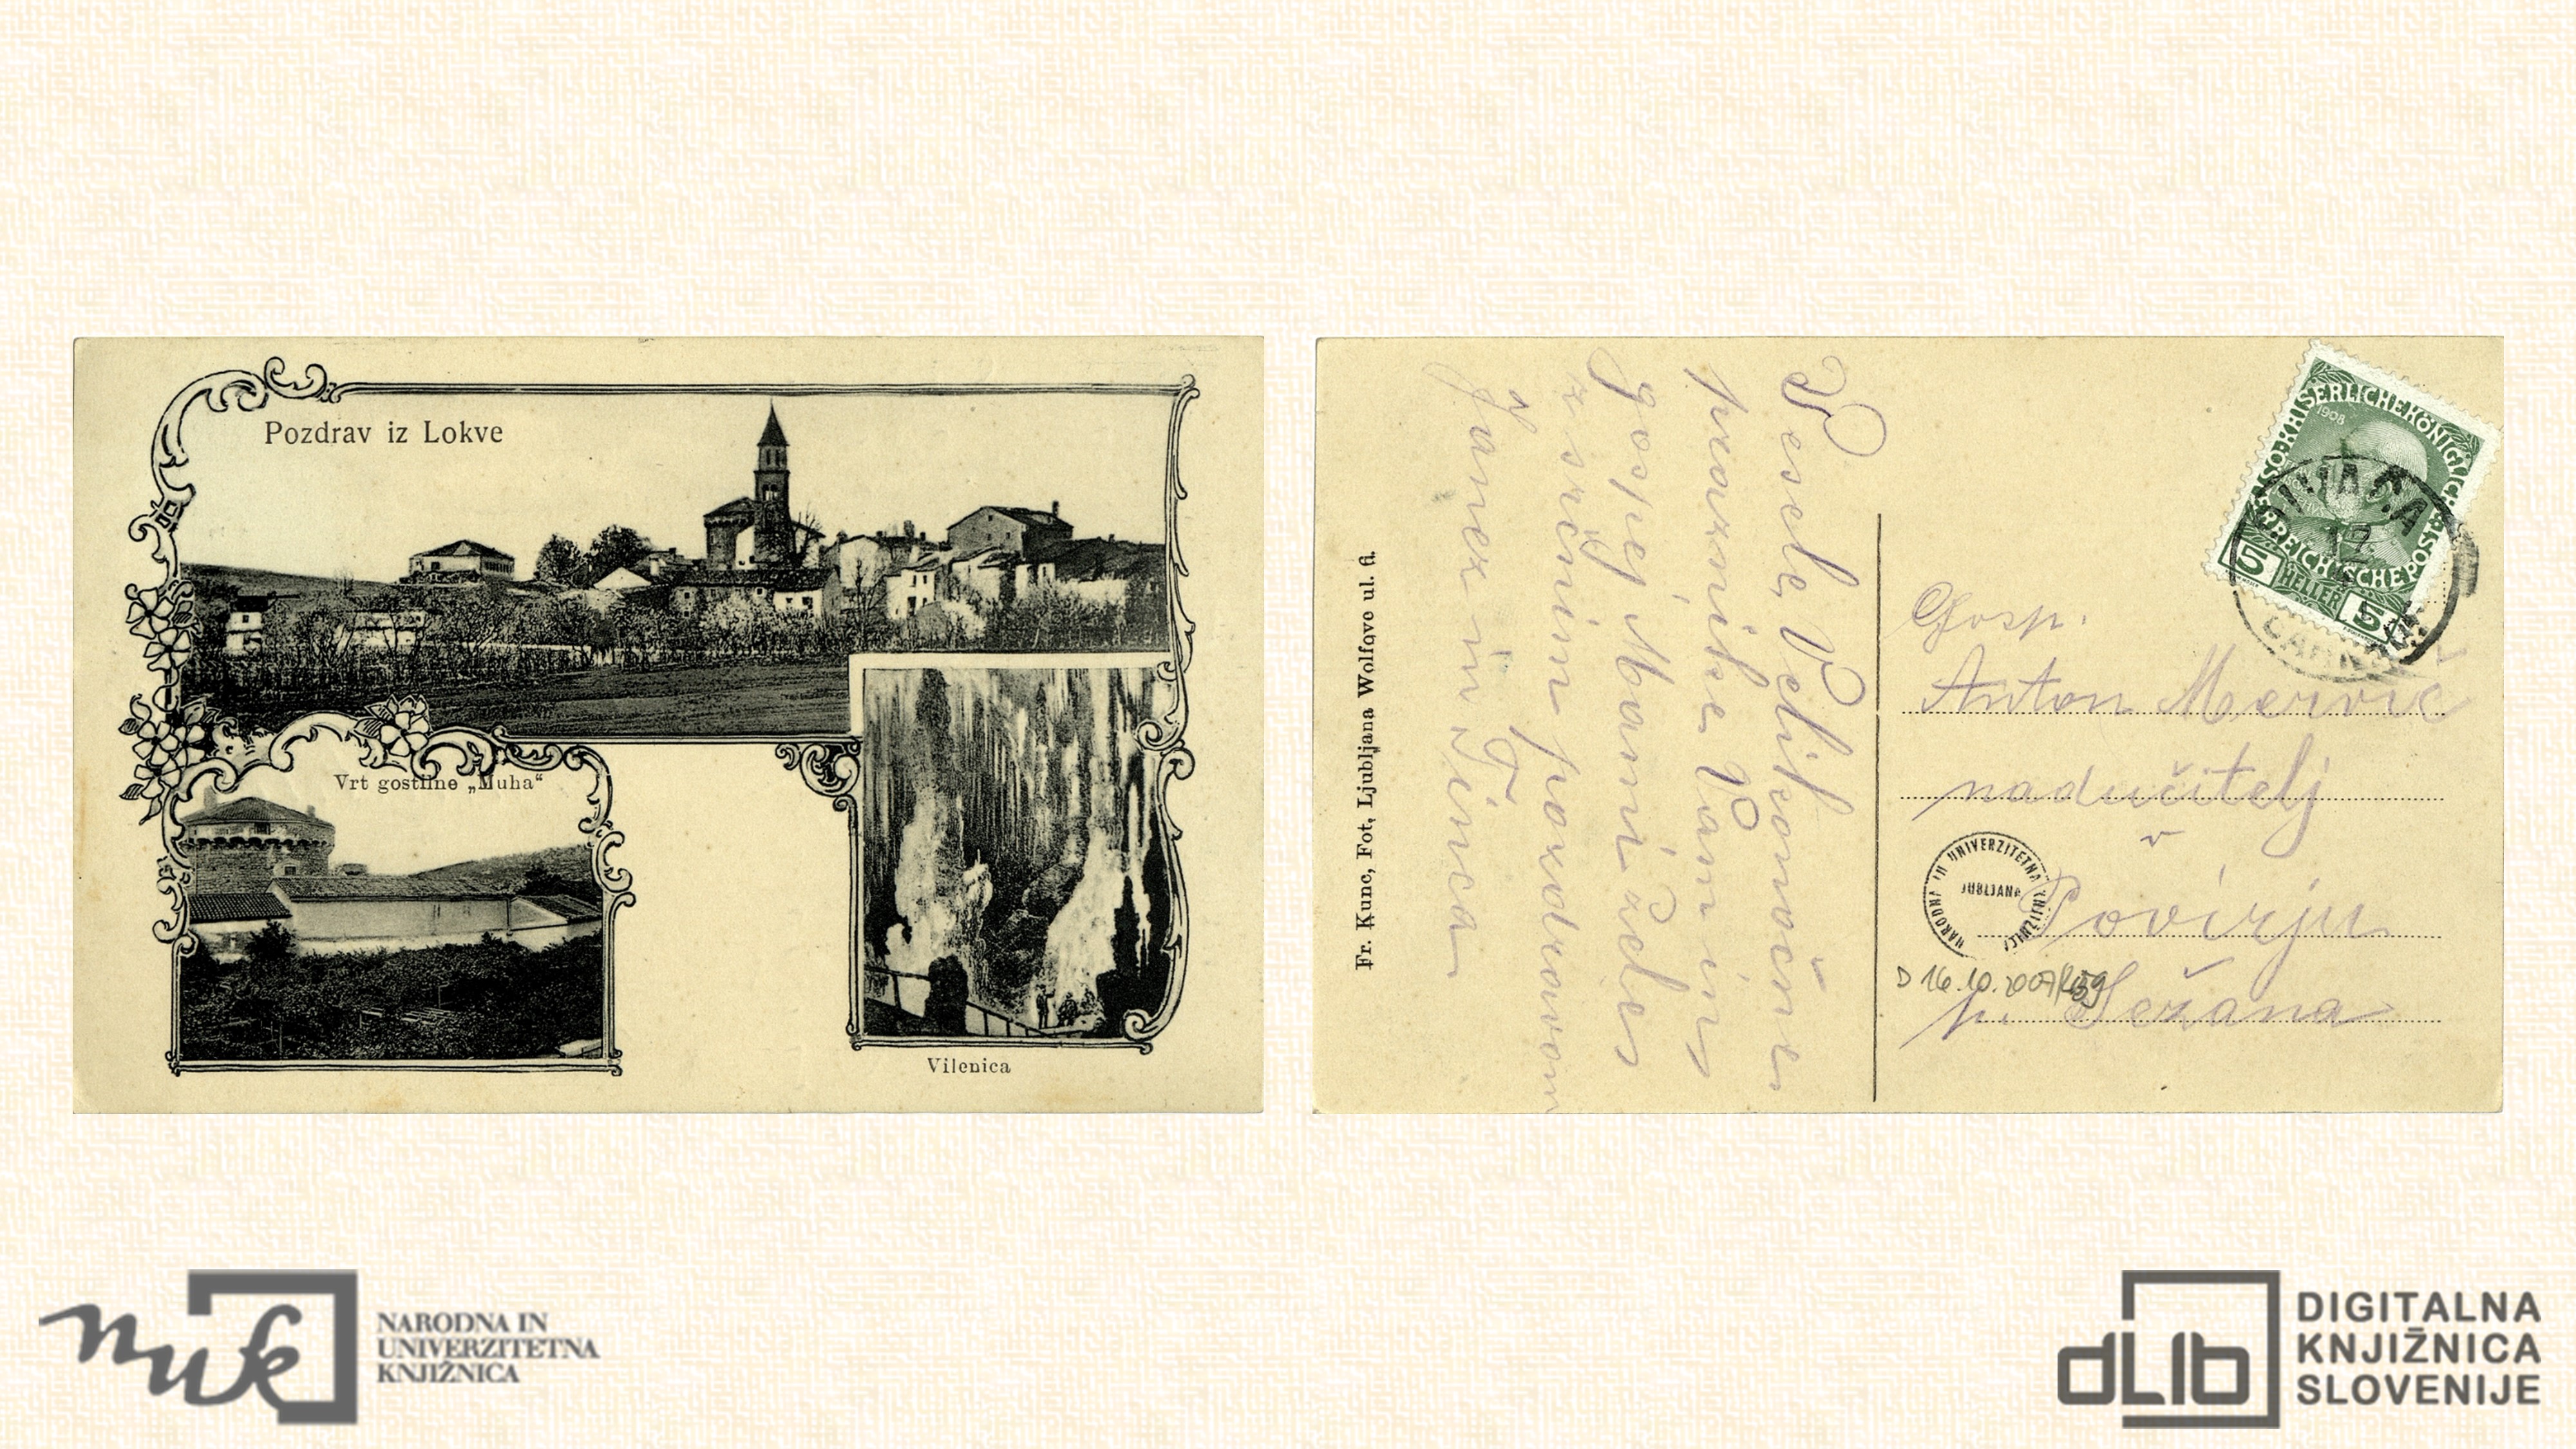 Pozdrav iz Lokve
Vrt gostilne „Muha“
Vilenica
Fr. Kunc, Fot, Ljubljana Wolfove ul. 6.
Vesele Velikonočne
praznike Vam in
gospej Mami želes
z srčnim pozdravom
Janez in Tinca
Gosp.
Anton Mervic
nadučitelj
v
Povirju
p. Sežana
D 16.10.2007/
NARODNA IN UNIVERZITETNA KNJIŽNICA
LJUBLJANA
KAISERLICHE KÖNIGLICHE
1908
ÖSTERREICHISCHE POST
5 HELLER 5
NARODNA IN
UNIVERZITETNA
KNJIŽNICA
dLib
DIGITALNA
KNJIŽNICA
SLOVENIJE